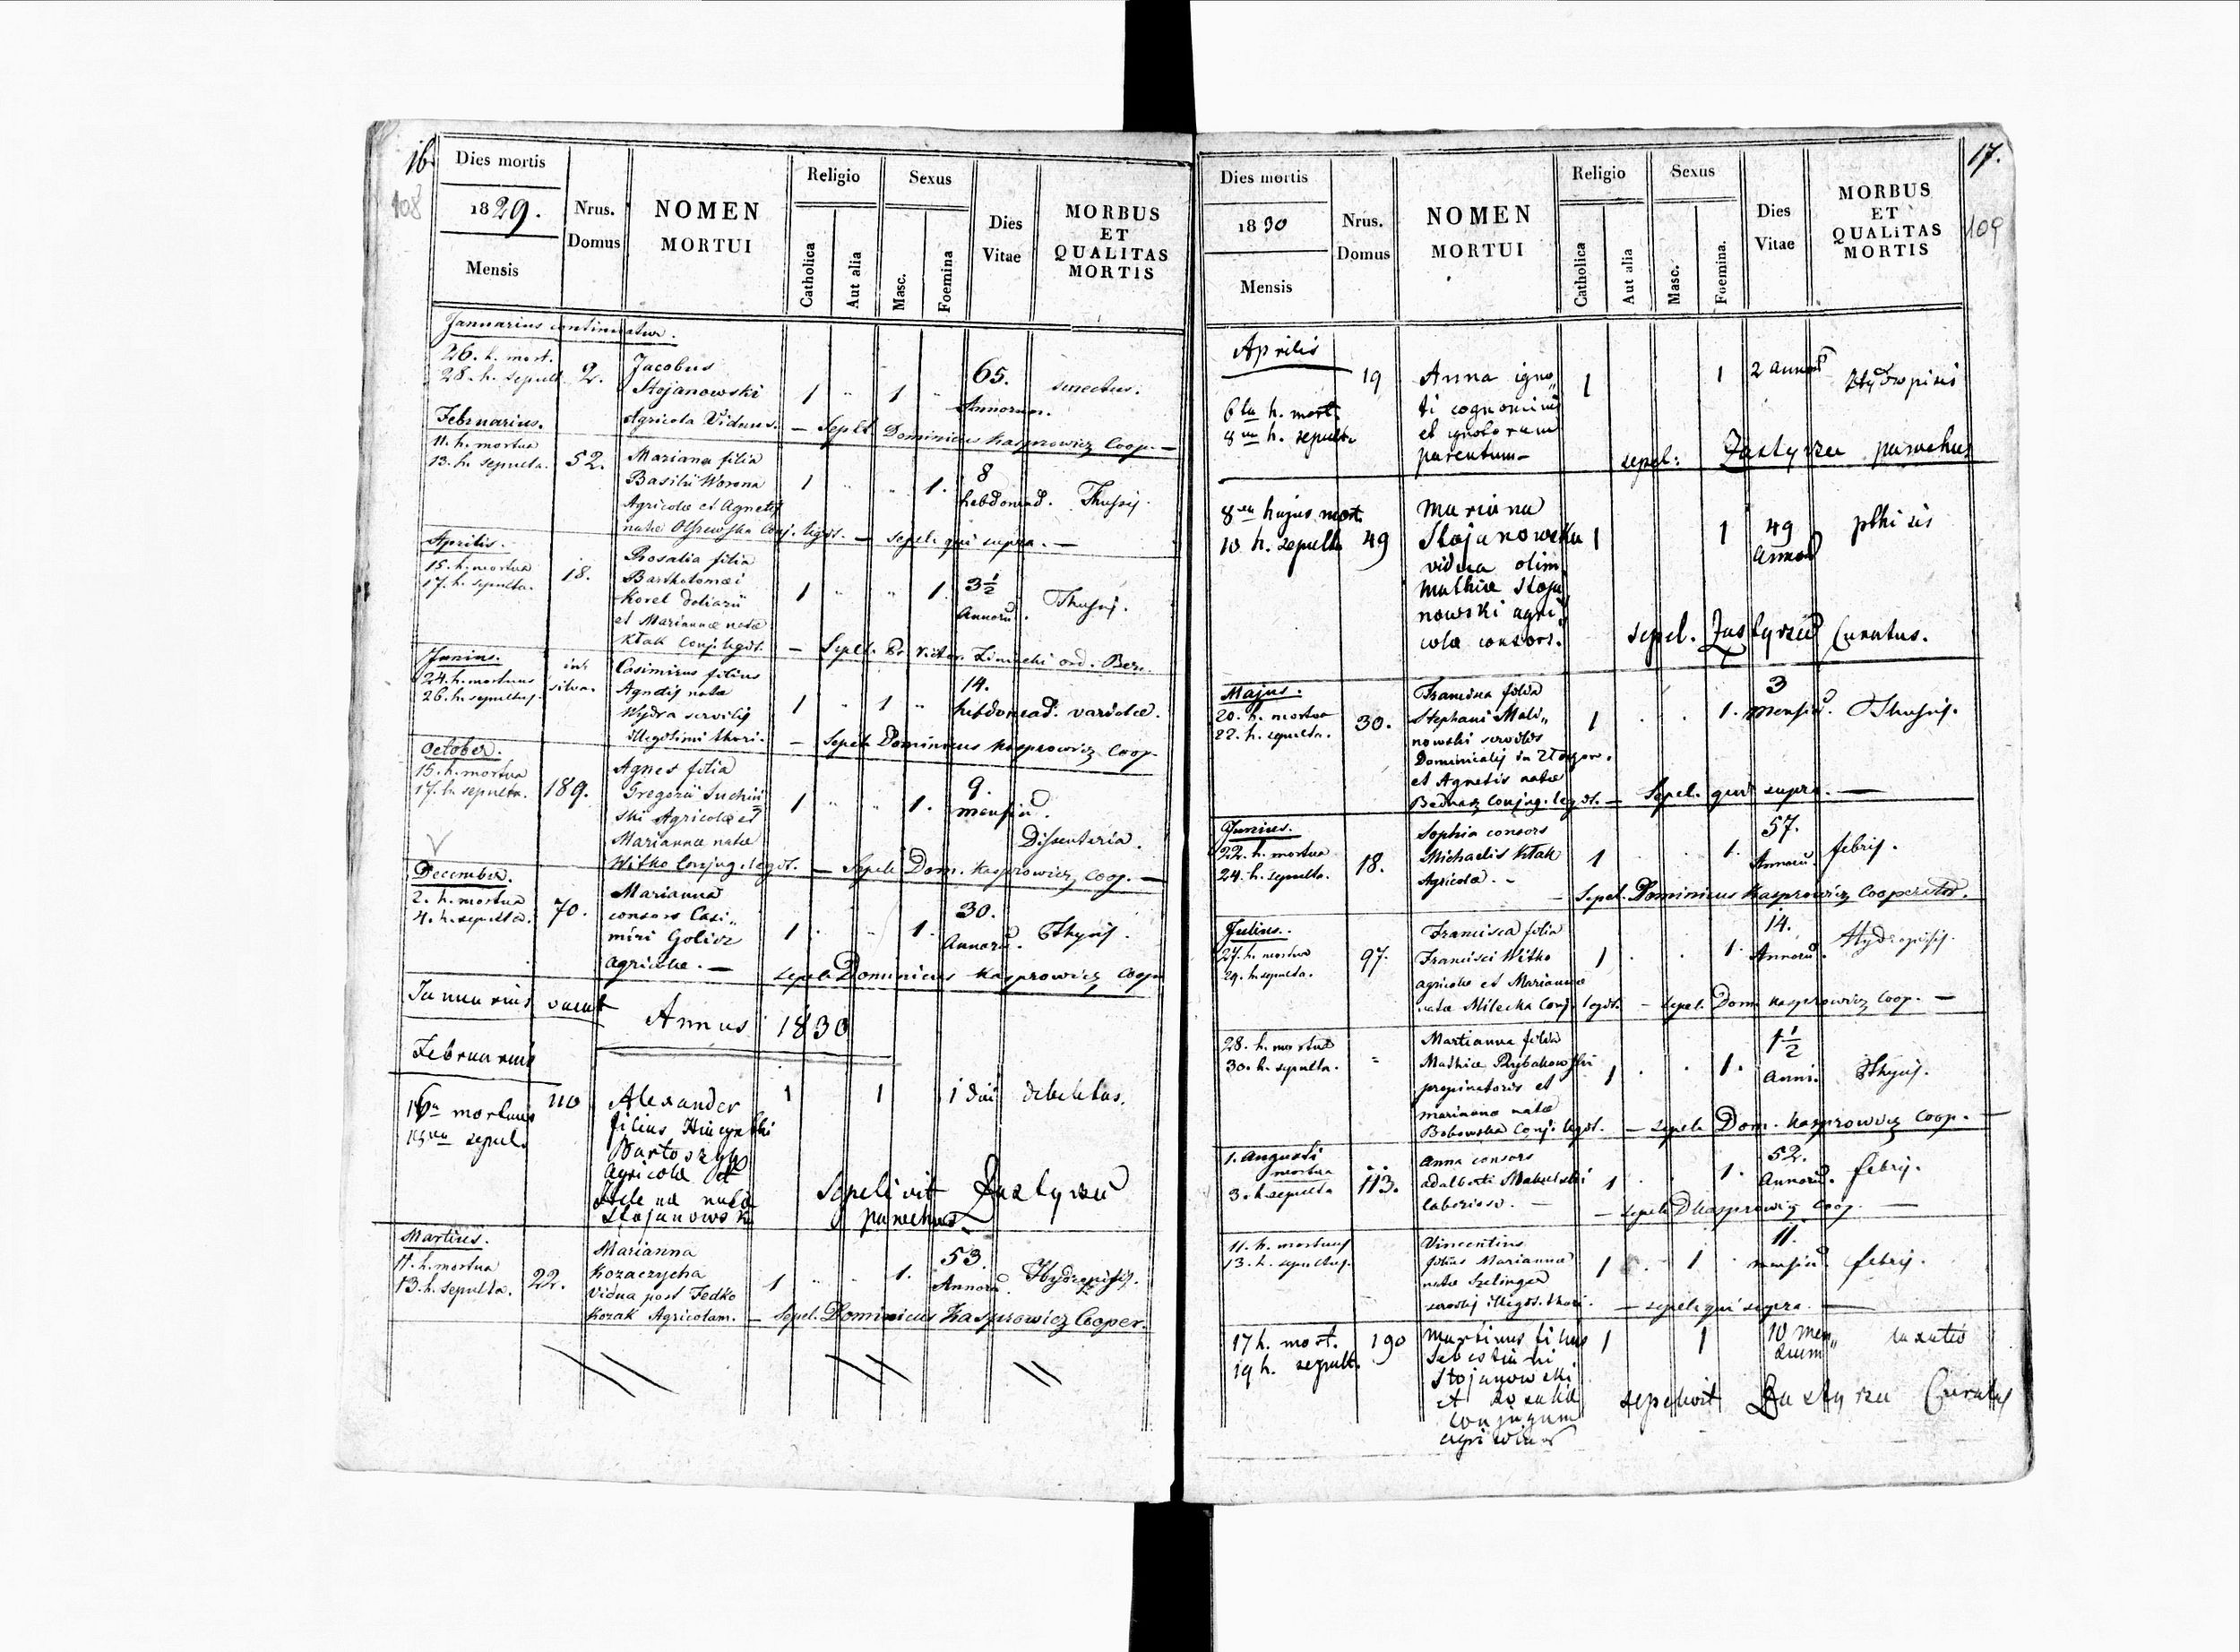 16
108
Dies mortis
1829.
Mensis
Nrus.
Domus
NOMEN
MORTUI
Religio
Catholica
Aut alia
Sexus
Masc.
Foemina
Dies
Vitae
MORBUS
ET
QUALITAS
MORTIS
Januarius continuatur.
26. h. mort.
28. h. sepult.
2.
Jacobus
Stojanowski
Agricola Viduus.
1 " 1 "
65.
Annorum.
senectus.
— Sepel. Dominicus Kasprowicz Coop. —
Februarius.
11. h. mortua
13. h. sepulta.
52.
Mariana filia
Basilii Worona
Agricolae et Agnetis
natae Olszewska Conj. legit.
1 " " 1.
8
hebdomad.
Thussis.
— sepel. qui supra. —
Aprilis.
15. h. mortua
17. h. sepulta.
18.
Rosalia filia
Bartholomaei
Korel doliarii
et Mariannae natae
Kłak Conj. legit.
1 " " 1.
3½
Annorū.
Thussis.
— Sepel. Dr. Victor. ord. Ber.
Junius.
24. h. mortuus
26. h. sepultus.
in
silva.
Casimirus filius
Agnetis natae
Wydra servilis
illegitimi thori.
1 " 1 "
14.
hebdomad.
variolae.
— Sepel. Dominicus Kasprowicz Coop.
October.
15. h. mortua
17. h. sepulta.
189.
Agnes filia
Gregorii Suchiń
ski Agricolae et
Mariannae natae
Witko Conjug. legit.
1 " " 1.
9.
mensiū.
Dissenteria.
— Sepel. Dom. Kasprowicz Coop. —
December.
2. h. mortua
4. h. sepulta.
70.
Marianna
consors Casi„
miri Golisz
agricolae. —
1 . " 1.
30.
Annorū.
Sepel. Dominicus Kasprowicz Coop
Januarius vacat
Annus 1830
Februarius
mortuus
sepul.
110
Alexander
filius
Bartoszyk
agricola et
Helena nata
Stojanowsk
1 1
1 diei
debilitas.
Sepelivit Zastyrzec
parochus
Martius.
11. h. mortua
13. h. sepulta.
22.
Marianna
Kozaczycha
vidua post Fedko
Kozak Agricolam.
1 " " 1.
53.
Annorū.
Hydropisis.
— Sepel. Dominicus Kasprowicz Cooper.
17.
109
Dies mortis
1830
Mensis
Nrus.
Domus
NOMEN
MORTUI
Religio
Catholica
Aut alia
Sexus
Masc.
Foemina.
Dies
Vitae
MORBUS
ET
QUALiTAS
MORTIS
Aprilis
6ta h. mort.
8va h. sepult.
19
Anna igno„
ti cognominis
et ignotorum
parentum—
1 1
2 annor
sepel: Zastyrzec parochus
8va hujus mort.
10 h. sepulta
49
Mariana
Stojanowska
vidua olim
Mathiae Stoja
nowski agri
colae consors.
1 1
49
annor
pthisis
sepel. Zastyrzec Curatus.
Majus.
20. h. mortua
22. h. sepulta.
30.
Francisca filia
Stephani Mali„
nowski servilis
Dominicalis in
et Agnetis natae
Bednarz Conjug. legit.
1 . . 1.
3
mensiū.
Thussis.
— Sepel. qui supra. —
Junius.
22. h. mortua
24. h. sepulta.
18.
Sophia consors
Michaelis Kłak
Agricolae. —
1 . . 1.
57.
Annorū.
febris.
— Sepel. Dominicus Kasprowicz Cooperator.
Julius.
27. h. mortua
29. h. sepulta.
97.
Francisca filia
Francisci Witko
agricolae et Mariannae
natae Milecka Conj. legit.
1 . . 1.
14.
Annorū.
Hydropisis.
— sepel. Dom. Kasprowicz Coop. —
28. h. mortua
30. h. sepulta.
"
Martianna filia
Mathiae Rybakowski
propinatoris et
mariannae natae
Bobowska Conj. legit.
1 . . 1.
1½
Anni.
— sepel. Dom. Kasprowicz Coop. —
1. Augusti
mortua
3. h. sepulta
113.
Anna consors
adalberti
laboriosi. —
1 . . 1.
52.
Annorū.
febris.
— sepel. D Kasprowicz Coop. —
11. h. mortuus
13. h. sepultus.
Vincentius
filius Mariannae
natae Szelinger
servilis illegit. thori.
1 . 1
11.
mensiū.
febris.
— sepel. qui supra. —
17 h. mort.
19 h. sepult.
190
Martinus filius
Sebestiani
Stojanowski
et Rosalia
conjugum
agricolar
1 1
10 men„
sium
sepelivit Zastyrzec Curatus